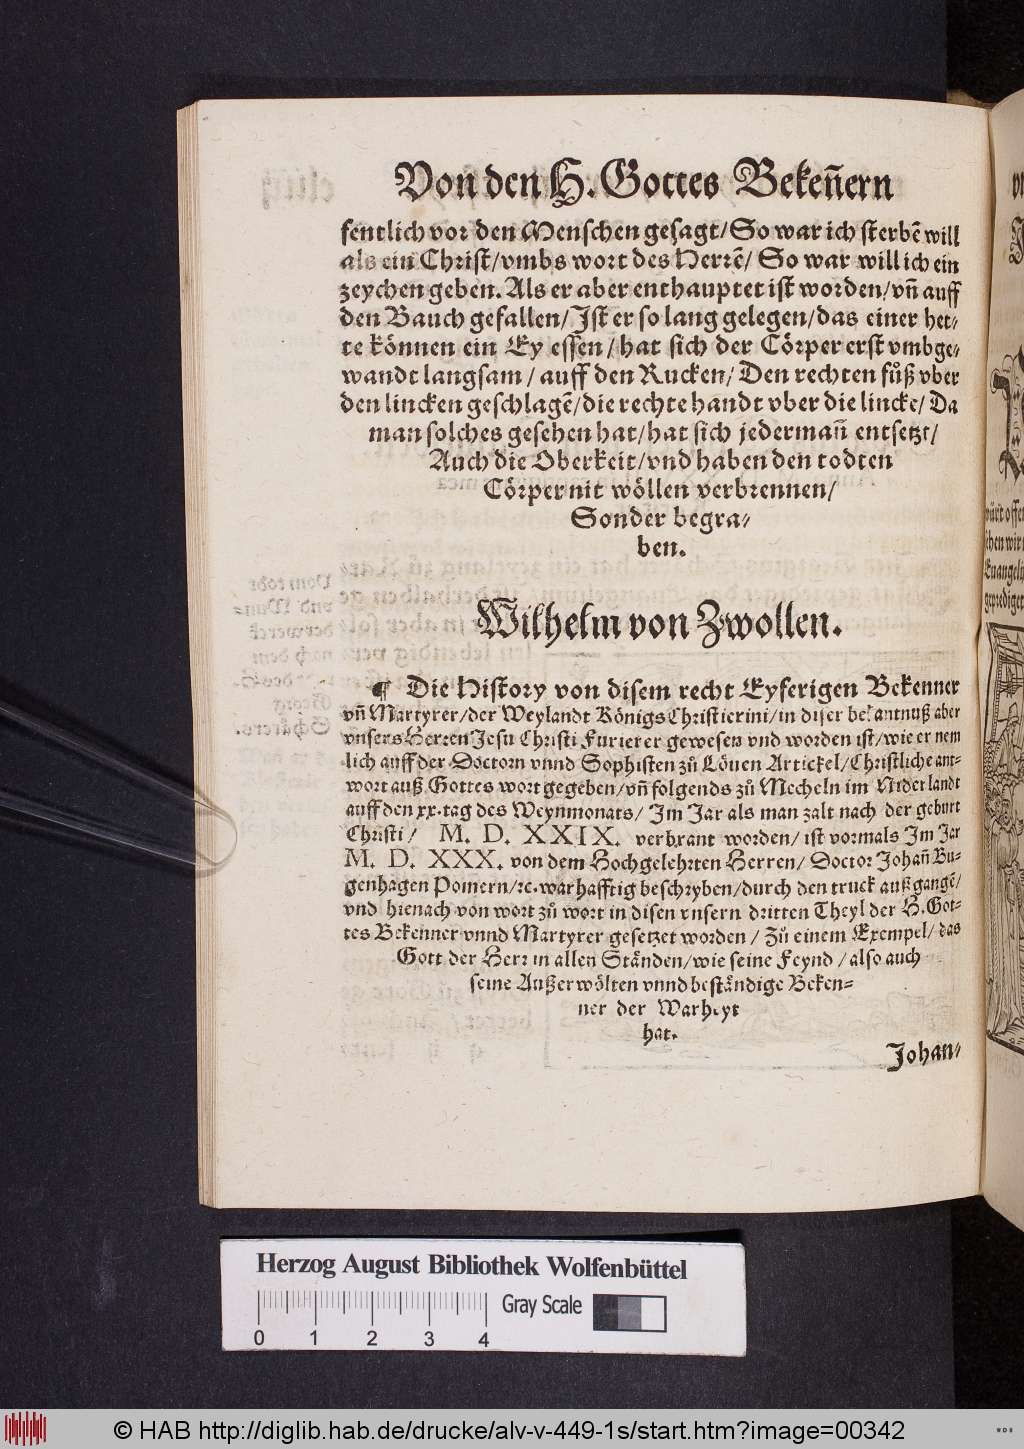 Von den H. Gottes Bekeñern
fentlich vor den Menschen gesagt/ So war ich sterbẽ will
als ein Christ/ vmbs wort des Herrẽ/ So war will ich ein
zeychen geben. Als er aber enthauptet ist worden/ vñ auff
den Bauch gefallen/ Ist er so lang gelegen/ das einer het-
te können ein Ey essen/ hat sich der Cörper erst vmbge-
wandt langsam/ auff den Rucken/ Den rechten fůß vber
den lincken geschlagẽ/ die rechte handt vber die lincke/ Da
man solches gesehen hat/ hat sich jedermañ entsetzt/
Auch die Oberkeit/ vnd haben den todten
Cörper nit wöllen verbrennen/
Sonder begra-
ben.
Wilhelm von Zwollen.
¶ Die History von disem recht Eyferigen Bekenner
vñ Martyrer/ der Weylandt Königs Christierini/ in diser bekantnuß aber
vnsers Herren Jesu Christi Furierer gewesen vnd worden ist/ wie er nem
lich auff der Doctorn vnnd Sophisten zů Löuen Artickel/ Christliche ant-
wort auß Gottes wort gegeben/ vñ folgends zů Mecheln im Niderlandt
auff den xx. tag des Weynmonats/ Im Jar als man zalt nach der geburt
Christi/ M. D. XXIX. verbrant worden/ ist vormals Im Jar
M. D. XXX. von dem Hochgelehrten Herren/ Doctor Johañ Bu-
genhagen Pomern/ ꝛc. warhafftig beschryben/ durch den truck außgangẽ/
vnd hienach von wort zů wort in disen vnsern dritten Theyl der H. Got-
tes Bekenner vnnd Martyrer gesetzet worden/ Zů einem Exempel/ das
Gott der Herr in allen Ständen/ wie seine Feynd/ also auch
seine Außerwölten vnnd beständige Beken-
ner der Warheyt
hat.
Johan-
Herzog August Bibliothek Wolfenbüttel
Gray Scale
0 1 2 3 4
© HAB http://diglib.hab.de/drucke/alv-v-449-1s/start.htm?image=00342